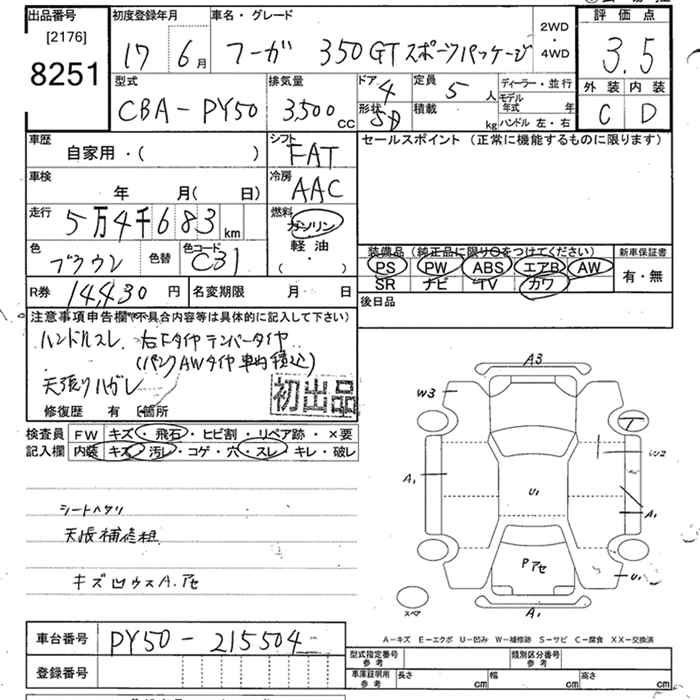 出品番号 初度登録年月 車名・グレード 2WD・4WD 評価点
[2176]
8251 17 6月 フーガ 350GTスポーツパッケージ 3.5
型式 排気量 ドア 4 定員 5人 ディーラー・並行 外装 内装
CBA-PY50 3,500cc 形状 SD 積載 kg モデル年式 年 C D
ハンドル 左・右
車歴 シフト セールスポイント(正常に機能するものに限ります)
自家用・( ) FAT
車検 年 月( 日) 冷房 AAC
走行 5万4千683km 燃料 ガソリン
軽油
・
( )
色 ブラウン 色替 色コード C31
装備品(純正品に限り○をつけてください) 新車保証書
PS PW ABS エアB AW 有・無
SR ナビ TV カワ
R券 14,430円 名変期限 月 日 後日品
注意事項申告欄(不具合内容等は具体的に記入して下さい)
ハンドルスレ 右Fタイヤテンパータイヤ
(パンクAWタイヤ車内積込)
天張りハガレ
初出品
修復歴 有 箇所
検査員 FW キズ・飛石・ヒビ割・リペア跡・×要
記入欄 内装 キズ・汚レ・コゲ・穴・スレ・キレ・破レ
シートヘタリ
天張補修粗
キズ凹ウスA.アセ
A3
W3
T
W2
A1
U1
A1
Pアセ
U1
スペア
A1
A-キズ E-エクボ U-凹み W-補修跡 S-サビ C-腐食 XX-交換済
車台番号 PY50-215504
型式指定番号 参考 類別区分番号 参考
登録番号
車庫証明用 参考 長さ cm 幅 cm 高さ cm